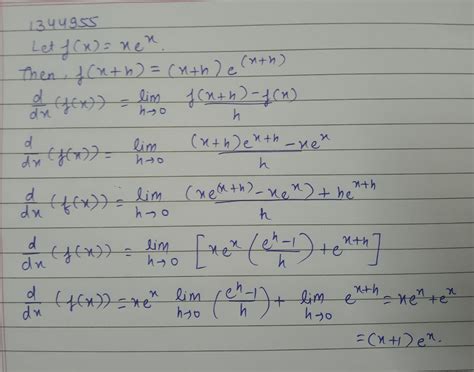 1344955
Let f(x) = xe^x.
Then, f(x+h) = (x+h) e^(x+h)
d/dx (f(x)) = lim h→0 f(x+h) - f(x)/h
d/dx (f(x)) = lim h→0 (x+h) e^x+h - xe^x/h
d/dx (f(x)) = lim h→0 (xe^(x+h) - xe^x) + he^x+h/h
d/dx (f(x)) = lim h→0 [xe^x (e^h-1/h) + e^x+h]
d/dx (f(x)) = xe^x lim h→0 (e^h-1/h) + lim h→0 e^x+h = xe^x + e^x
= (x+1) e^x.